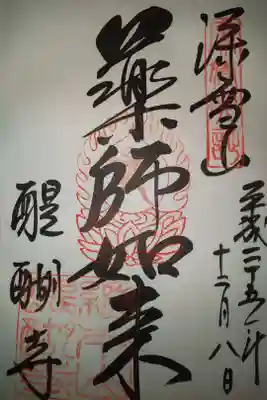 深雪山
平成二十五年
十二月八日
薬師如来
醍醐寺